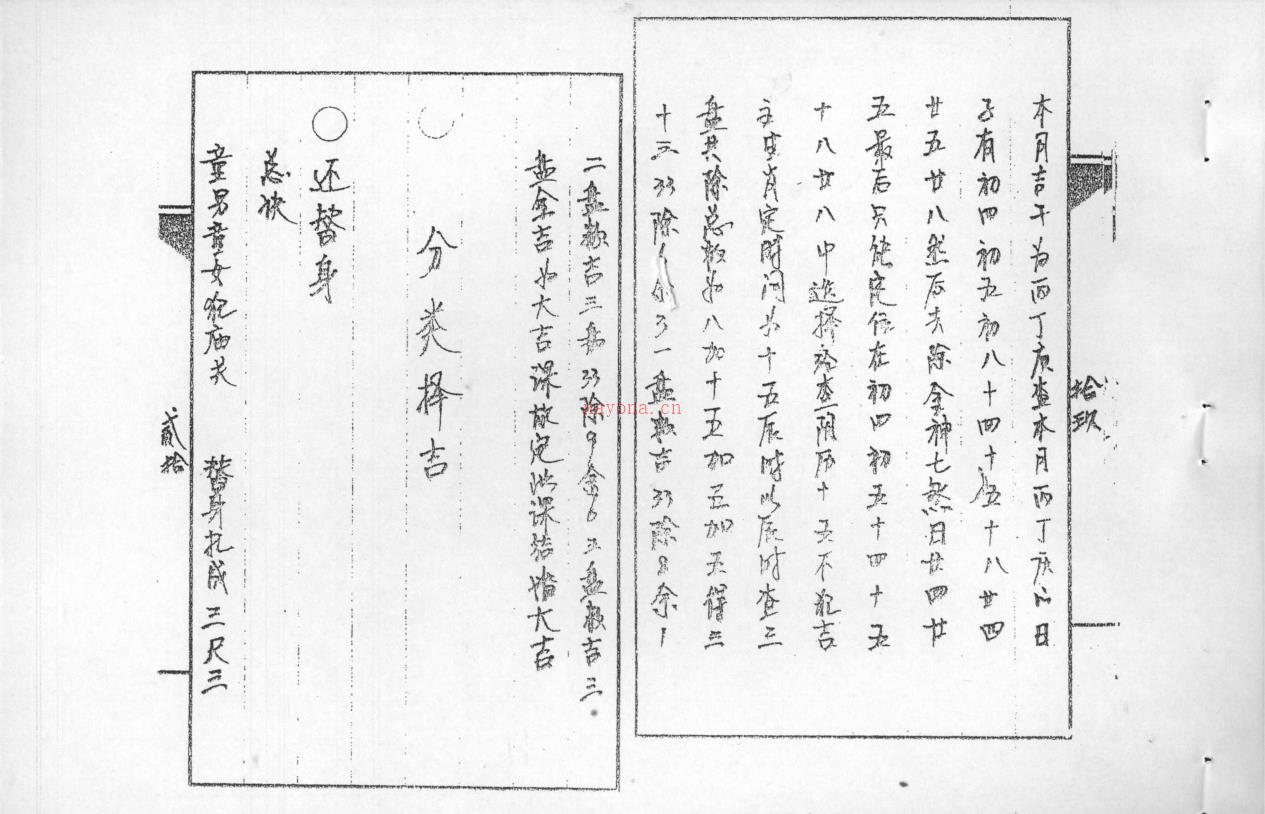 本月吉干为丙丁庚查本月丙丁庚的日
子有初四初五初八十四十五十八廿四
廿五廿八然后去除金神七煞日廿四廿
五最后只能定位在初四初五十四十五
十八廿八中选择论查阴历十五不犯吉
主生肖定时间为十五辰时以辰时查三
盘共除总数为八加十五加五加五得三
十三33除 余 一盘数吉33除8余1
拾玖
二盘数吉三 33除9余6三盘数吉三
盘全吉为大吉课故定此课结婚大吉
分类择吉
还替身
总诀
童男童女犯庙关 替身扎成三尺三
贰拾
nayona.cn